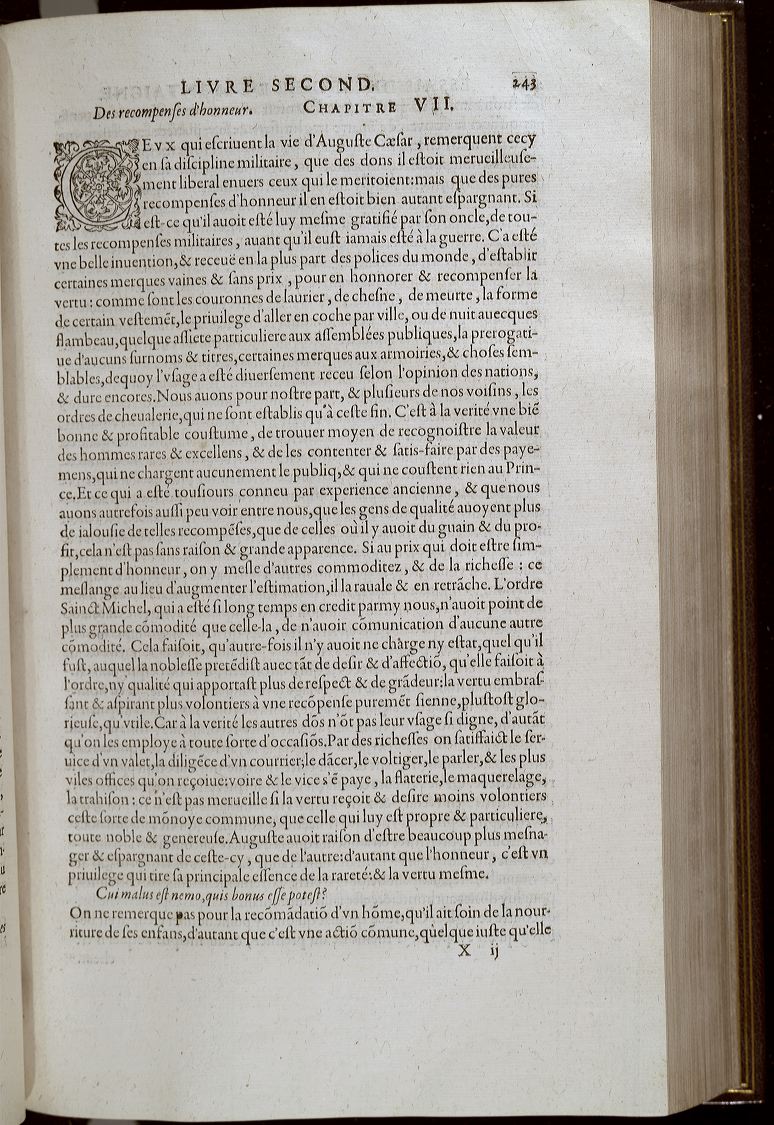 LIVRE SECOND. 243
Des recompenſes d'honneur. CHAPITRE VII.
CEVX qui eſcriuent la vie d'Auguſte Cæſar, remerquent cecy
en ſa diſcipline militaire, que des dons il eſtoit merueilleuſe-
ment liberal enuers ceux qui le meritoient: mais que des pures
recompenſes d'honneur il en eſtoit bien autant eſpargnant. Si
eſt-ce qu'il auoit eſté luy meſme gratifié par ſon oncle, de tou-
tes les recompenſes militaires, auant qu'il euſt iamais eſté à la guerre. C'a eſté
vne belle inuention, & receuë en la plus part des polices du monde, d'eſtablir
certaines merques vaines & ſans prix, pour en honnorer & recompenſer la
vertu: comme ſont les couronnes de laurier, de cheſne, de meurte, la forme
de certain veſtemẽt, le priuilege d'aller en coche par ville, ou de nuit auecques
flambeau, quelque aſſiete particuliere aux aſſemblées publiques, la prerogati-
ue d'aucuns ſurnoms & titres, certaines merques aux armoiries, & choſes ſem-
blables, dequoy l'vſage a eſté diuerſement receu ſelon l'opinion des nations,
& dure encores. Nous auons pour noſtre part, & pluſieurs de nos voiſins, les
ordres de cheualerie, qui ne ſont eſtablis qu'à ceſte fin. C'eſt à la verité vne biẽ
bonne & profitable couſtume, de trouuer moyen de recognoiſtre la valeur
des hommes rares & excellens, & de les contenter & ſatis-faire par des paye-
mens, qui ne chargent aucunement le publiq, & qui ne couſtent rien au Prin-
ce. Et ce qui a eſté touſiours conneu par experience ancienne, & que nous
auons autrefois auſſi peu voir entre nous, que les gens de qualité auoyent plus
de ialouſie de telles recompẽſes, que de celles où il y auoit du guain & du pro-
fit, cela n'eſt pas ſans raiſon & grande apparence. Si au prix qui doit eſtre ſim-
plement d'honneur, on y meſle d'autres commoditez, & de la richeſſe: ce
meſlange au lieu d'augmenter l'eſtimation, il la rauale & en retrãche. L'ordre
Sainct Michel, qui a eſté ſi long temps en credit parmy nous, n'auoit point de
plus grande cõmodité que celle-la, de n'auoir cõmunication d'aucune autre
cõmodité. Cela faiſoit, qu'autre-fois il n'y auoit ne charge ny eſtat, quel qu'il
fuſt, auquel la nobleſſe pretẽdiſt auec tãt de deſir & d'affectiõ, qu'elle faiſoit à
l'ordre, ny qualité qui apportaſt plus de reſpect & de grãdeur: la vertu embraſ-
ſant & aſpirant plus volontiers à vne recõpenſe puremẽt ſienne, pluſtoſt glo-
rieuſe, qu'vtile. Car à la verité les autres dõs n'õt pas leur vſage ſi digne, d'autãt
qu'on les employe à toute ſorte d'occaſiõs. Par des richeſſes on ſatiffaict le ſer-
uice d'vn valet, la diligẽce d'vn courrier, le dãcer, le voltiger, le parler, & les plus
viles offices qu'on reçoiue: voire & le vice s'ẽ paye, la flaterie, le maquerelage,
la trahiſon: ce n'eſt pas merueille ſi la vertu reçoit & deſire moins volontiers
ceſte ſorte de mõnoye commune, que celle qui luy eſt propre & particuliere,
toute noble & genereuſe. Auguſte auoit raiſon d'eſtre beaucoup plus meſna-
ger & eſpargnant de ceſte-cy, que de l'autre: d'autant que l'honneur, c'eſt vn
priuilege qui tire ſa principale eſſence de la rareté: & la vertu meſme.
Cui malus eſt nemo, quis bonus eſſe poteſt?
On ne remerque pas pour la recõmãdatiõ d'vn hõme, qu'il ait ſoin de la nour-
riture de ſes enfans, d'autant que c'eſt vne actiõ cõmune, quelque iuſte qu'elle
X ij